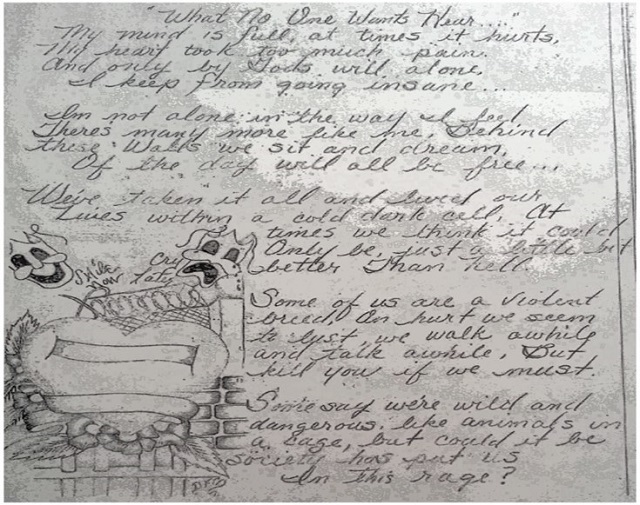 "What No One Wants Hear...."
My mind is full, at times it hurts,
My heart took too much pain.
And only by Gods will alone,
I keep from going insane...
I'm not alone in the way I feel
Theres many more like me. Behind
these Walls we sit and dream,
Of the day will all be free...
We've taken it all and lived our
Lives within a cold dark cell, At
times we think it could
Only be, just a little bit
better Than hell.
Smile
Now
Cry
later
Some of us are a violent
breed, On hurt we seem
to lust, we walk awhile
and talk awhile, But
kill you if we must.
Some say we're wild and
dangerous, like animals in
a cage, but could it be
society has put us
In this rage?